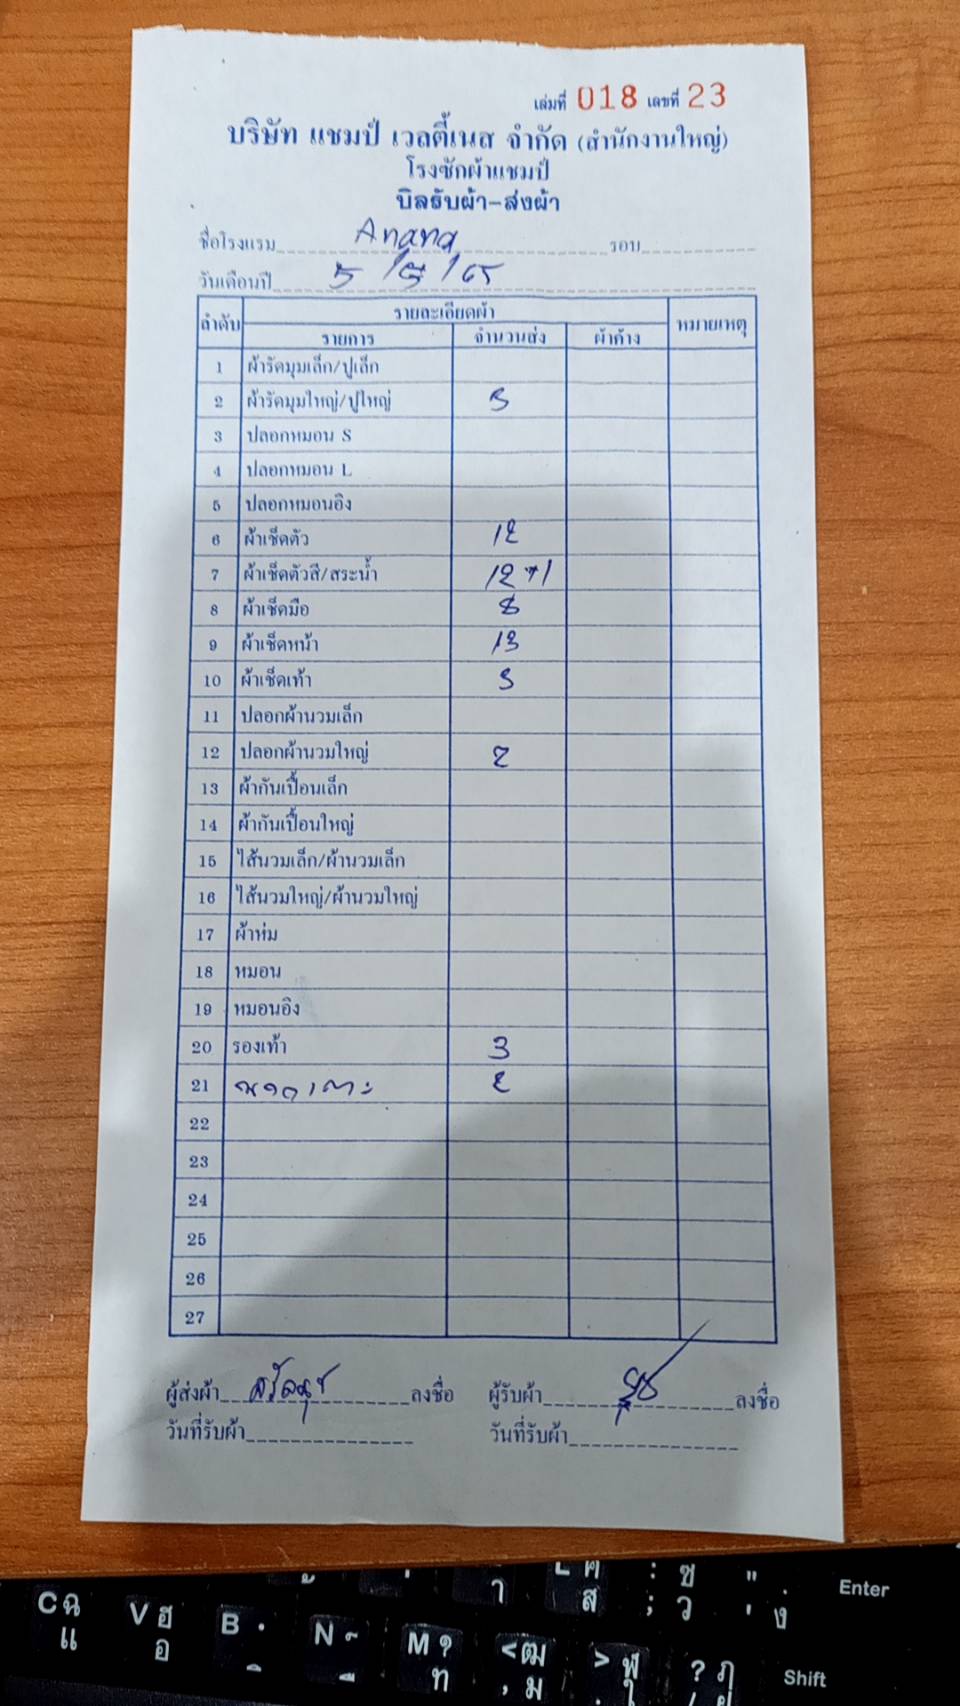 เล่มที่ 018 เลขที่ 23
บริษัท แชมป์ เวลตี้เนส จำกัด (สำนักงานใหญ่)
โรงซักผ้าแชมป์
บิลรับผ้า-ส่งผ้า
ชื่อโรงแรม Anana รอบ
วันเดือนปี
ลำดับ รายละเอียดผ้า หมายเหตุ
รายการ จำนวนส่ง ผ้าค้าง
1 ผ้ารัดมุมเล็ก/ปูเล็ก
2 ผ้ารัดมุมใหญ่/ปูใหญ่
3 ปลอกหมอน S
4 ปลอกหมอน L
5 ปลอกหมอนอิง
6 ผ้าเช็ดตัว 12
7 ผ้าเช็ดตัวสี/สระน้ำ 12+1
8 ผ้าเช็ดมือ 8
9 ผ้าเช็ดหน้า 13
10 ผ้าเช็ดเท้า
11 ปลอกผ้านวมเล็ก
12 ปลอกผ้านวมใหญ่ 2
13 ผ้ากันเปื้อนเล็ก
14 ผ้ากันเปื้อนใหญ่
15 ไส้นวมเล็ก/ผ้านวมเล็ก
16 ไส้นวมใหญ่/ผ้านวมใหญ่
17 ผ้าห่ม
18 หมอน
19 หมอนอิง
20 รองเท้า 3
21
22
23
24
25
26
27
ผู้ส่งผ้า ลงชื่อ ผู้รับผ้า ลงชื่อ
วันที่รับผ้า วันที่รับผ้า
Cฉ แ Vฮ อ B N M ท <ฒ , ม > ฬ ? ฦ Shift
า ศ ส : ซ ; ว " ' ง Enter